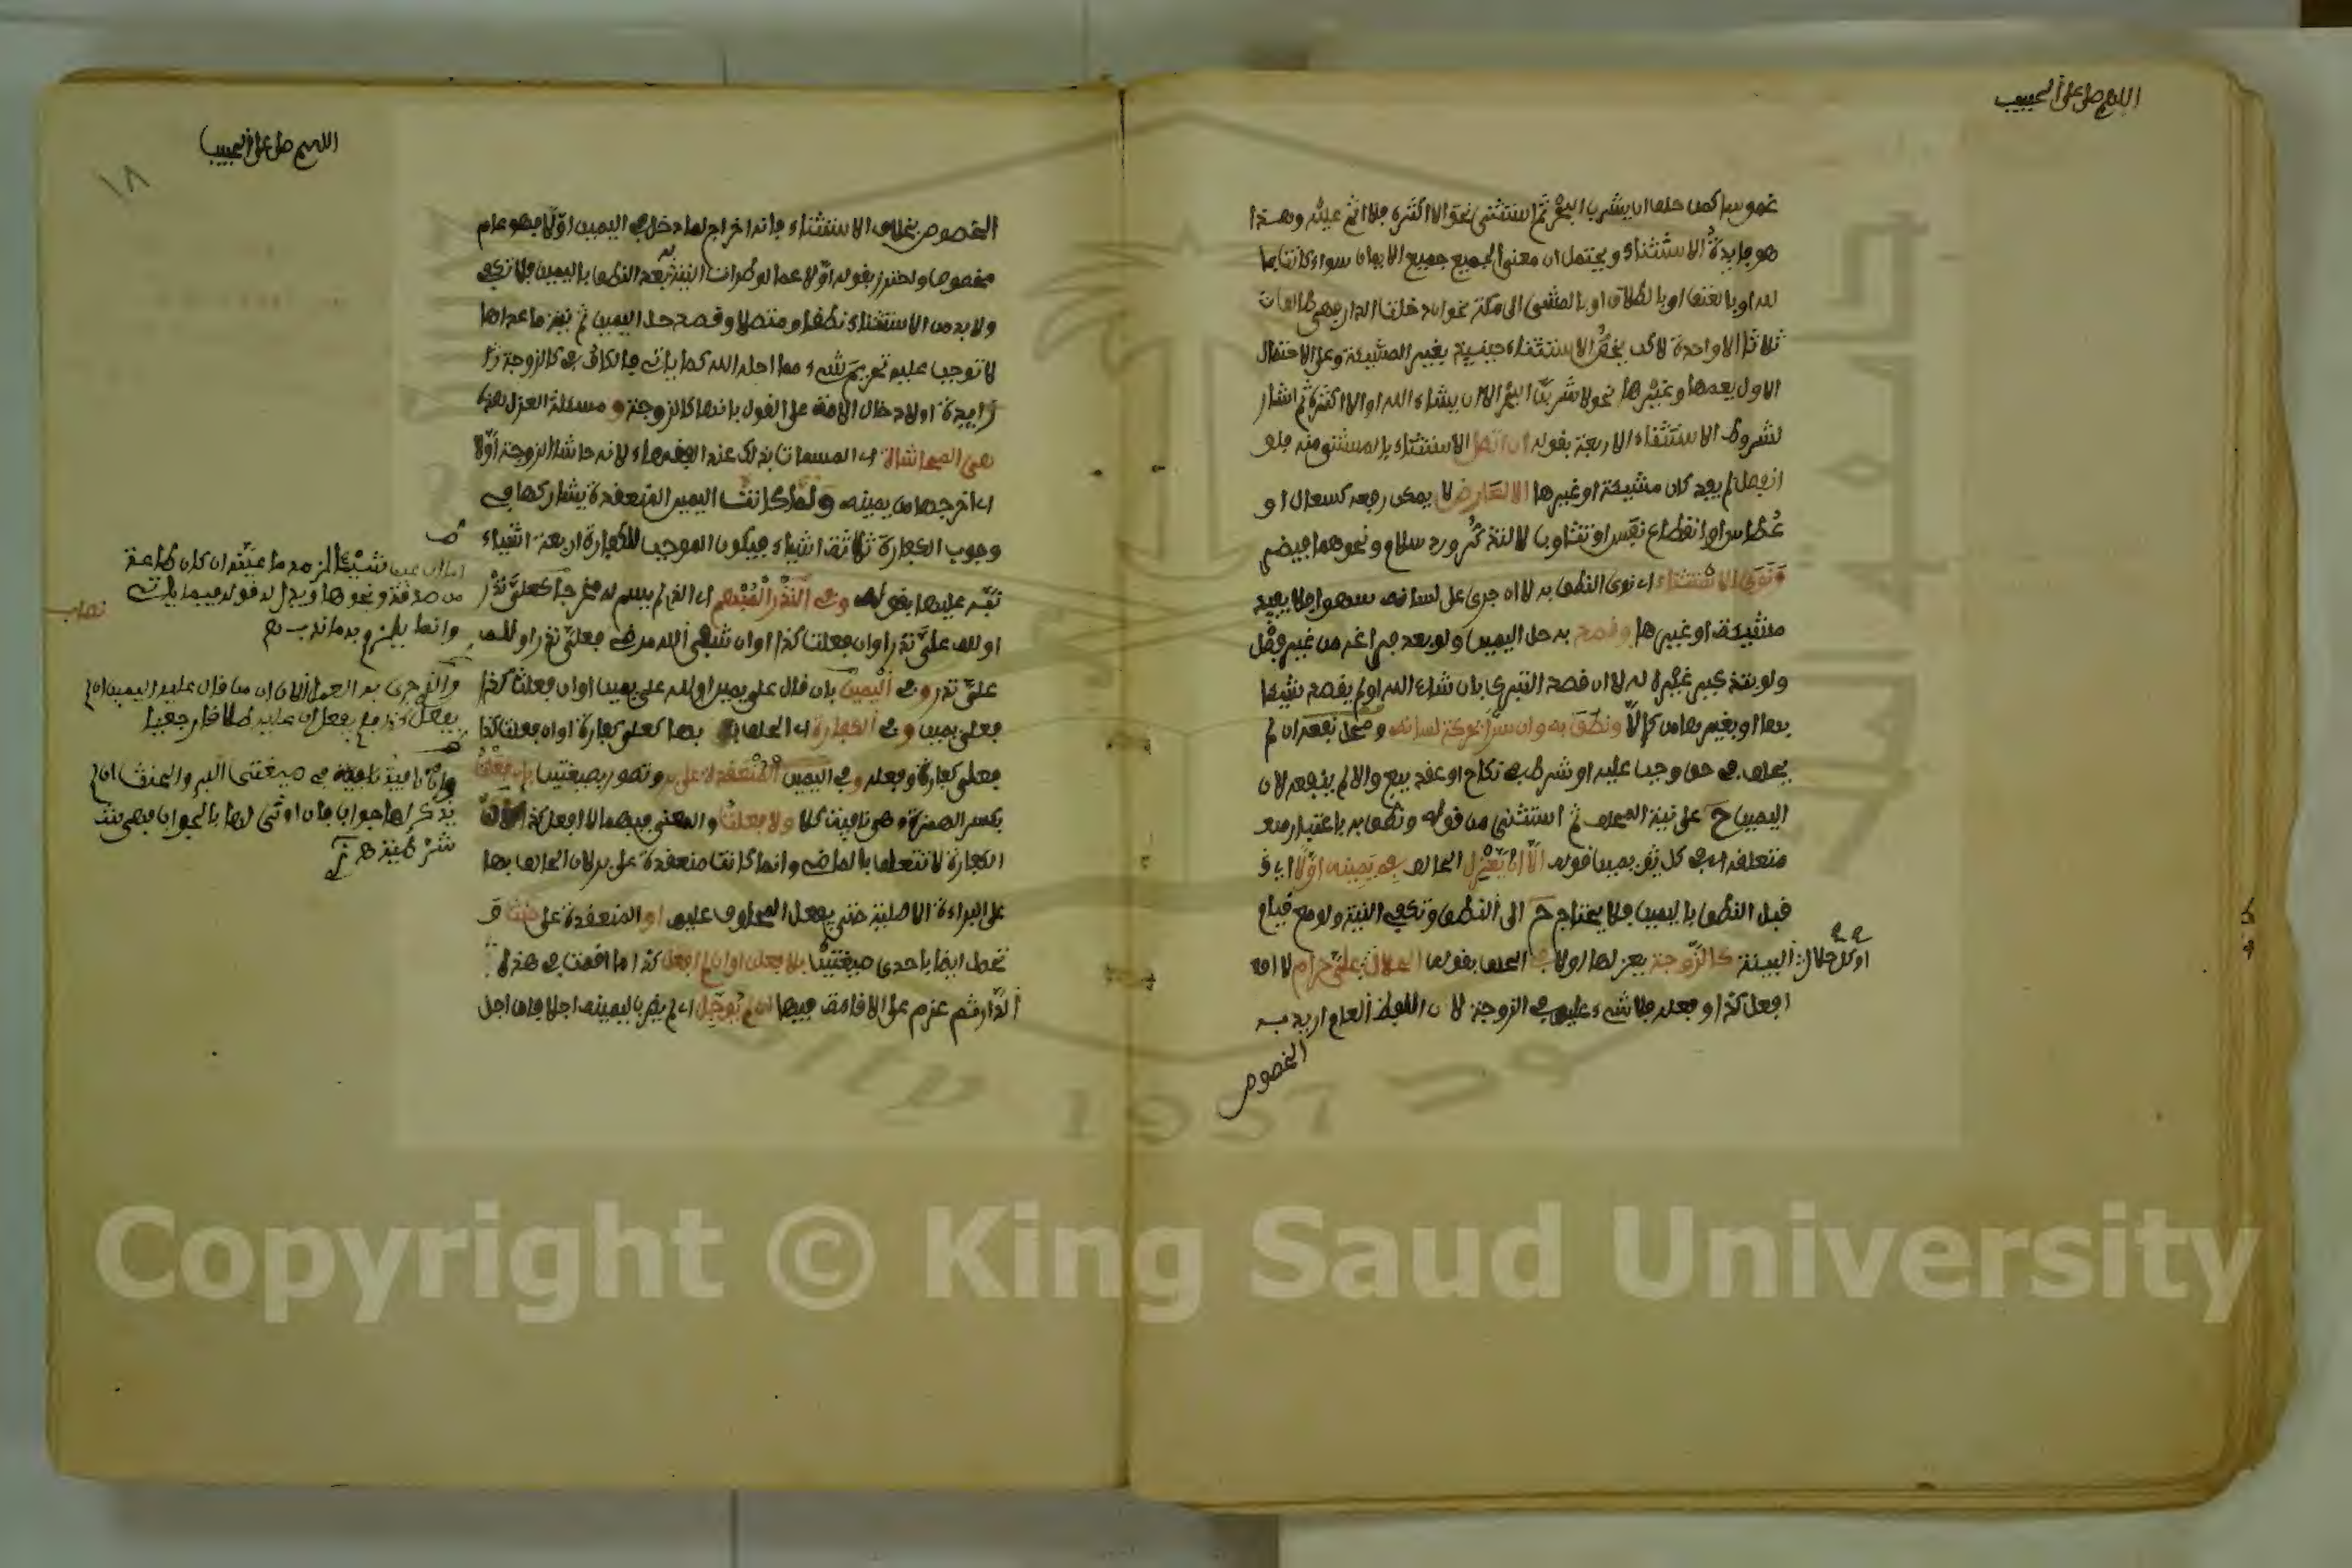 اللهم صل على الحبيب
غموسا كمن حلف ان يشرب البحر ثم استثنى نحو الا اكثره فلا اثم عليه وهذا
هو فايدة الاستثناء ويحتمل ان معنى الجميع جميع الايمان سواء كانت بما
لله او بالعتق او بالطلاق او بالمشي الى مكة نحو ان دخلت الدار فهي طالق
ثلاثا الا واحدة لاكن يخص الاستثناء حينئذ بغير المشيئة وعلى الاحتمال
الاول يعمها وغيرها نحو لا شربت البحر الا ان يشاء الله او الا اكثره ثم اشار
لشروط الاستثناء الاربعة بقوله ان اتصل الاستثناء بالمستثنى منه فلو
انفصل لم يفد كان مشيئة او غيرها الا لعارض لا يمكن رفعه كسعال او
عطاس او انقطاع نفس او تثاوب لا لتذكر ورد سلام ونحوهما فيضر
ونوى الاستثناء اي نوى النطق به لا ان جرى على لسانه سهوا فلا يفيد
مشيئة او غيرها وقصد به حل اليمين ولو بعد فراغه من غير فصل
ولو بتذكير غيره له لا ان قصد التبرك بان شاء الله او لم يقصد شيئا
بها او بغيرها من كالا ونطق به وان سرا بحركة لسانه ومحل نفعه ان لم
يحلف في حق وجب عليه او شرط في نكاح او عقد بيع والا لم ينفعه لان
اليمين ح على نية المحلف ثم استثنى من قوله ونطق به باعتبار
متعلقه اي في كل يمين قوله الا ان يعزل الحالف في يمينه اولا اي
قبل النطق باليمين فلا يحتاج ح الى النطق وتكفي النية ولو مع قيام
البينة كالزوجة يعزلها اولا في الحلف بقوله الحلال علي حرام لا
او كل حلال
افعل كذا وفعله فلا شيء عليه في الزوجة لان اللفظ العام اريد به
الخصوص
اللهم صل على الحبيب
١٨
الخصوص بخلاف الاستثناء فانه اخراج لما دخل في اليمين اولا فهو عام
مخصوص واحترز بقوله اولا عما لو طرات النية بعد النطق باليمين فلا تكفي
ولا بد من الاستثناء نطقا ومتصلا وقصد حل اليمين ثم
لا توجب عليه تحريم شيء مما احله الله كما ياتي فالكاف في كالزوجة
زايدة او لادخال الامة على القول بانها كالزوجة ومسئلة العزل هذه
هي المحاشاة اي المسمات بذلك عند الفقهاء لانه حاشا الزوجة اولا
اي اخرجها من يمينه ولما كانت اليمين المنعقدة يشاركها في
وجوب الكفارة ثلاثة اشياء فيكون الموجب للكفارة اربعة اشياء
نبه عليها بقوله وفي النذر المبهم اي الذي لم يسم له مخرجا كعلي نذر
او لله علي نذر او ان فعلت كذا او ان شفى الله مريضي فعلي نذر او لله
علي نذر وفي اليمين بان قال علي يمين او لله علي يمين او ان فعلت كذا
فعلي يمين وفي الكفارة اي الحلف بها كعلي كفارة او ان فعلت كذا
فعلي كفارة وفعله وفي اليمين المنعقدة على بر وتصور بصيغتين بان فعلت
بكسر الهمزة وهي نافية كلا ولا فعلت والمعنى فيهما لا افعل كذا لان
الكفارة لا تتعلق بالماضي وانما كانت منعقدة على بر لان الحالف بها
على البراءة الاصلية حتى يفعل المحلوف عليه او المنعقدة على حنث و
تحصل ايضا باحدى صيغتين بلافعلن او ان لم افعل كذا اما اقمت في هذه
الدار ثم عزم على الاقامة فيها ان لم يؤجل اي لم يضرب ليمينه اجلا فان اجل
اما ان عين شيئا لزمه ما عينه ان كان طاعة
من صدقة ونحوها ويدل له قوله فيما ياتي
وانما يلزم به ما ندب
والذي جرى به العمل الان ان من قال عليه اليمين ان لم
يفعل كذا فلم يفعل ان عليه طلاقا رجعيا
وان نافية في صيغتي البر والحنث ان لم
يذكر لها جواب فان اوتي لها بالجواب فهي
شرطية